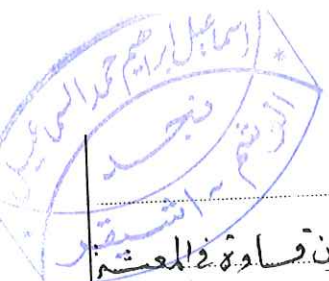 اسماعيل ابراهيم حمد السماعيل
بنجد
اشيقر
ن قساوة في المعيشة